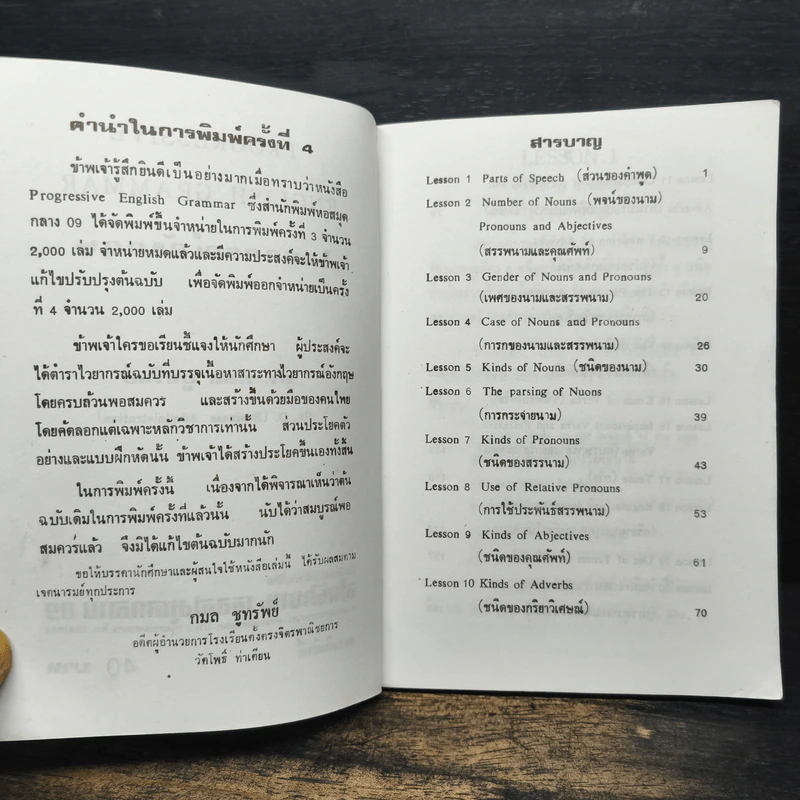 คำนำในการพิมพ์ครั้งที่ 4
ข้าพเจ้ารู้สึกยินดีเป็นอย่างมากเมื่อทราบว่าหนังสือ
Progressive English Grammar ซึ่งสำนักพิมพ์หอสมุด
กลาง 09 ได้จัดพิมพ์ขึ้นจำหน่ายในการพิมพ์ครั้งที่ 3 จำนวน
2,000 เล่ม จำหน่ายหมดแล้วและมีความประสงค์จะให้ข้าพเจ้า
แก้ไขปรับปรุงต้นฉบับ เพื่อจัดพิมพ์ออกจำหน่ายเป็นครั้ง
ที่ 4 จำนวน 2,000 เล่ม
ข้าพเจ้าใครขอเรียนชี้แจงให้นักศึกษา ผู้ประสงค์จะ
ได้ตำราไวยากรณ์ฉบับที่บรรจุเนื้อหาสาระทางไวยากรณ์อังกฤษ
โดยครบล้วนพอสมควร และสร้างขึ้นด้วยมือของคนไทย
โดยคัดลอกแต่เฉพาะหลักวิชาการเท่านั้น ส่วนประโยคตัว
อย่างและแบบฝึกหัดนั้น ข้าพเจ้าได้สร้างประโยคขึ้นเองทั้งสิ้น
ในการพิมพ์ครั้งนี้ เนื่องจากได้พิจารณาเห็นว่าต้น
ฉบับเดิมในการพิมพ์ครั้งที่แล้วนั้น นับได้ว่าสมบูรณ์พอ
สมควรแล้ว จึงมิได้แก้ไขต้นฉบับมากนัก
ขอให้บรรดานักศึกษาและผู้สนใจใช้หนังสือเล่มนี้ ได้รับผลสมตาม
เจตนารมย์ทุกประการ
กมล ชูทรัพย์
อดีตผู้อำนวยการโรงเรียนตั้งตรงจิตรพาณิชยการ
วัดโพธิ์ ท่าเตียน
สารบาญ
Lesson 1 Parts of Speech (ส่วนของคำพูด) 1
Lesson 2 Number of Nouns (พจน์ของนาม)
Pronouns and Abjectives
(สรรพนามและคุณศัพท์) 9
Lesson 3 Gender of Nouns and Pronouns
(เพศของนามและสรรพนาม) 20
Lesson 4 Case of Nouns and Pronouns
(การกของนามและสรรพนาม) 26
Lesson 5 Kinds of Nouns (ชนิดของนาม) 30
Lesson 6 The parsing of Nuons
(การกระจายนาม) 39
Lesson 7 Kinds of Pronouns
(ชนิดของสรรนาม) 43
Lesson 8 Use of Relative Pronouns
(การใช้ประพันธ์สรรพนาม) 53
Lesson 9 Kinds of Abjectives
(ชนิดของคุณศัพท์) 61
Lesson 10 Kinds of Adverbs
(ชนิดของกริยาวิเศษณ์) 70